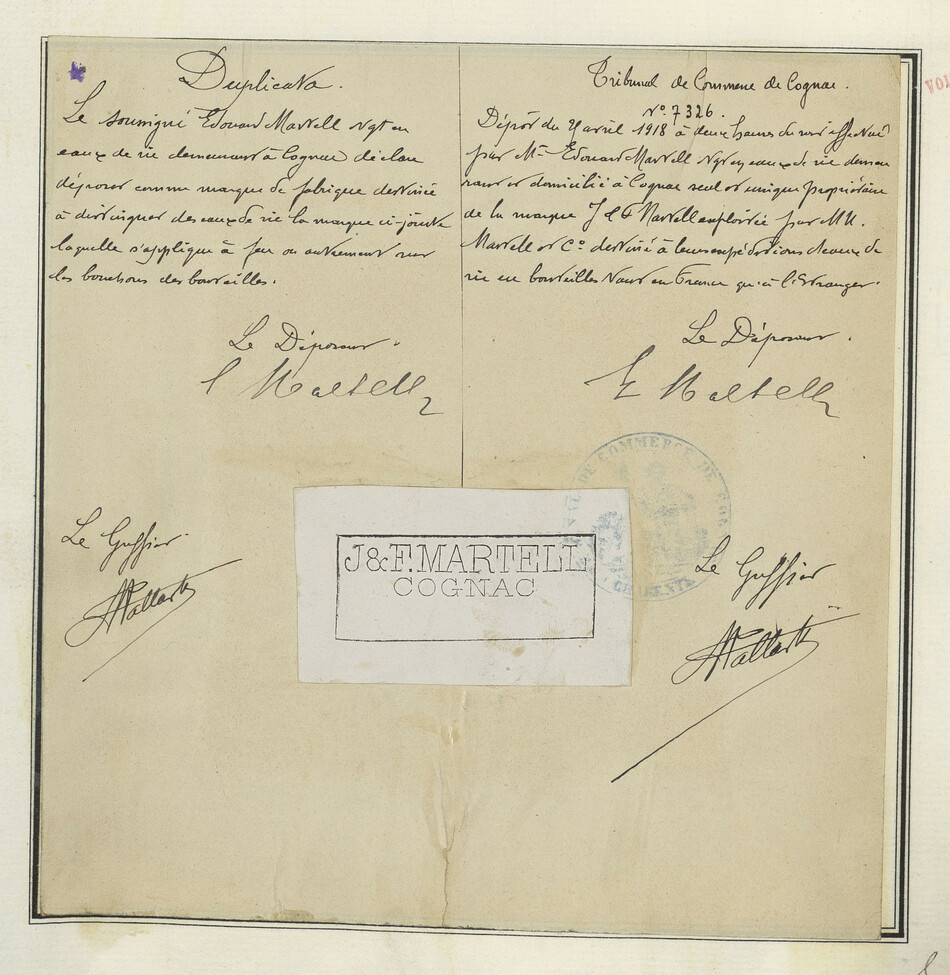 Duplicata.
Le soussigné Edouard Martell Ngt en
eaux de vie demeurant à Cognac déclare
déposer comme marque de fabrique destinée
à distinguer des eaux de vie la marque ci-jointe
laquelle s'applique à feu ou autrement sur
les bouchons des bouteilles.
Le Déposant.
E Martell
Le Greffier
Tribunal de Commerce de Cognac.
N° 7326.
Dépôt du avril 1918 à deux heures du soir effectué
par Mr Edouard Martell Ngt en eaux de vie demeu
rant et domicilié à Cognac seul et unique propriétaire
de la marque J & F Martell exploitée par MM.
Martell et Co destinée à leurs expéditions d'eaux de
vie en bouteilles tant en France qu'à l'Etranger.
Le Déposant.
E Martell
TRIBUNAL DE COMMERCE DE COGNAC
CHARENTE
Le Greffier
J&F. MARTELL
COGNAC
VOI